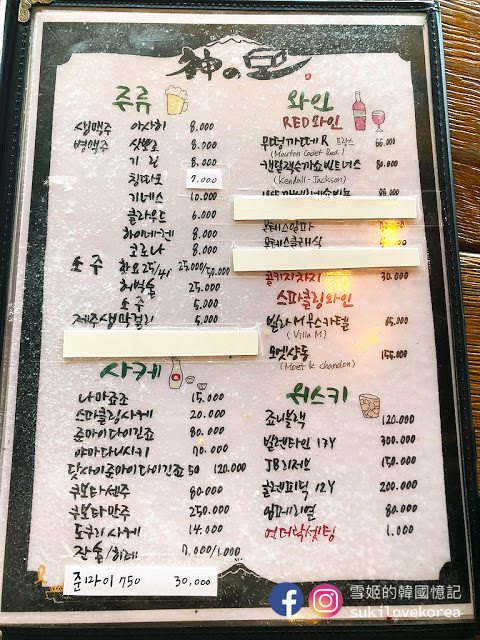 神の
주류
생맥주 아사히 8.000
병맥주 삿뽀로 8.000
기린 8.000
칭따오 7.000
기네스 10.000
클라우드 6.000
하이네켄 8.000
코로나 8.000
소주 화요25/41 25.000/50.000
허벅술 25.000
소주 5.000
제주생막걸리 5.000
사케
나마쵸죠 15.000
스파클링사케 20.000
준마이다이긴죠 80.000
야마다니시키 70.000
닷사이준마이다이긴죠 50 120.000
쿠보타센주 80.000
쿠보타만주 250.000
도쿠리사케 14.000
잔술/히레 7.000/1.000
준마이 750 30,000
와인
RED와인
무똥까떼R 프랑스 66.000
(Mouton Cadet Red)
캔달잭슨까쇼빈트너스 80.000
(Kendall-Jackson)
몬테스알파
몬테스클래식
콜키지차지 30.000
스파클링와인
빌라M무스카텔 65.000
(Villa M)
모엣샹동 155.000
(Moet & chandon)
위스키
죠니블랙 120.000
발렌타인 17Y 300.000
JB리저브 150.000
글렌피딕 12Y 200.000
임페리얼 80.000
언더락셋팅 1.000
雪姬的韓國憶記
sukilovekorea